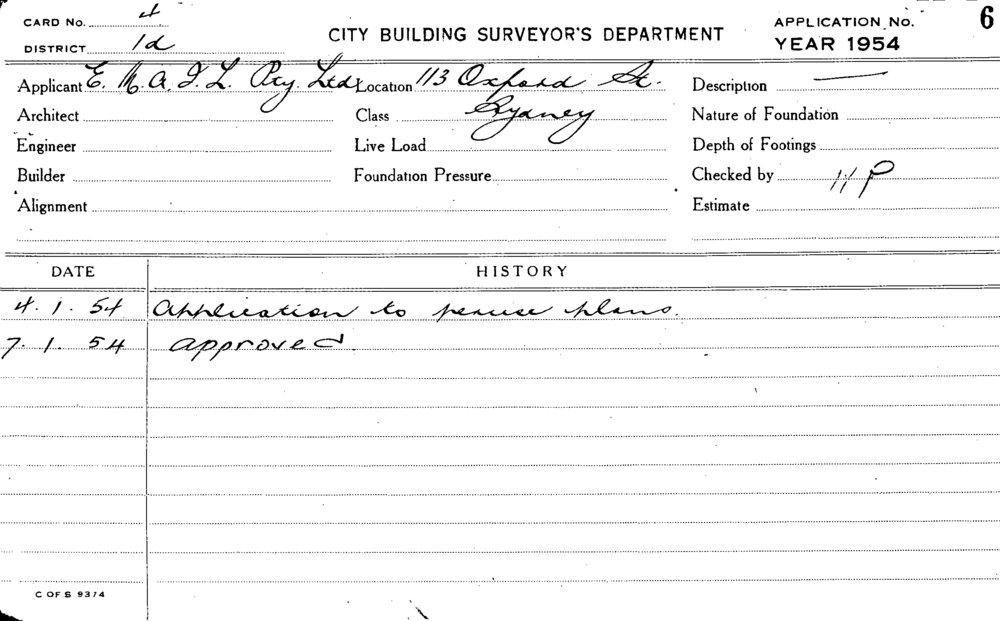 CARD No. 4
DISTRICT 1d
CITY BUILDING SURVEYOR'S DEPARTMENT
APPLICATION No. 6
YEAR 1954
Applicant E. M. A. I. L. Pty. Ltd. Location 113 Oxford St. Description
Architect Class Sydney Nature of Foundation
Engineer Live Load Depth of Footings
Builder Foundation Pressure Checked by
Alignment Estimate
DATE HISTORY
4. 1. 54 Application to peruse plans.
7. 1. 54 approved.
C OF S 9374